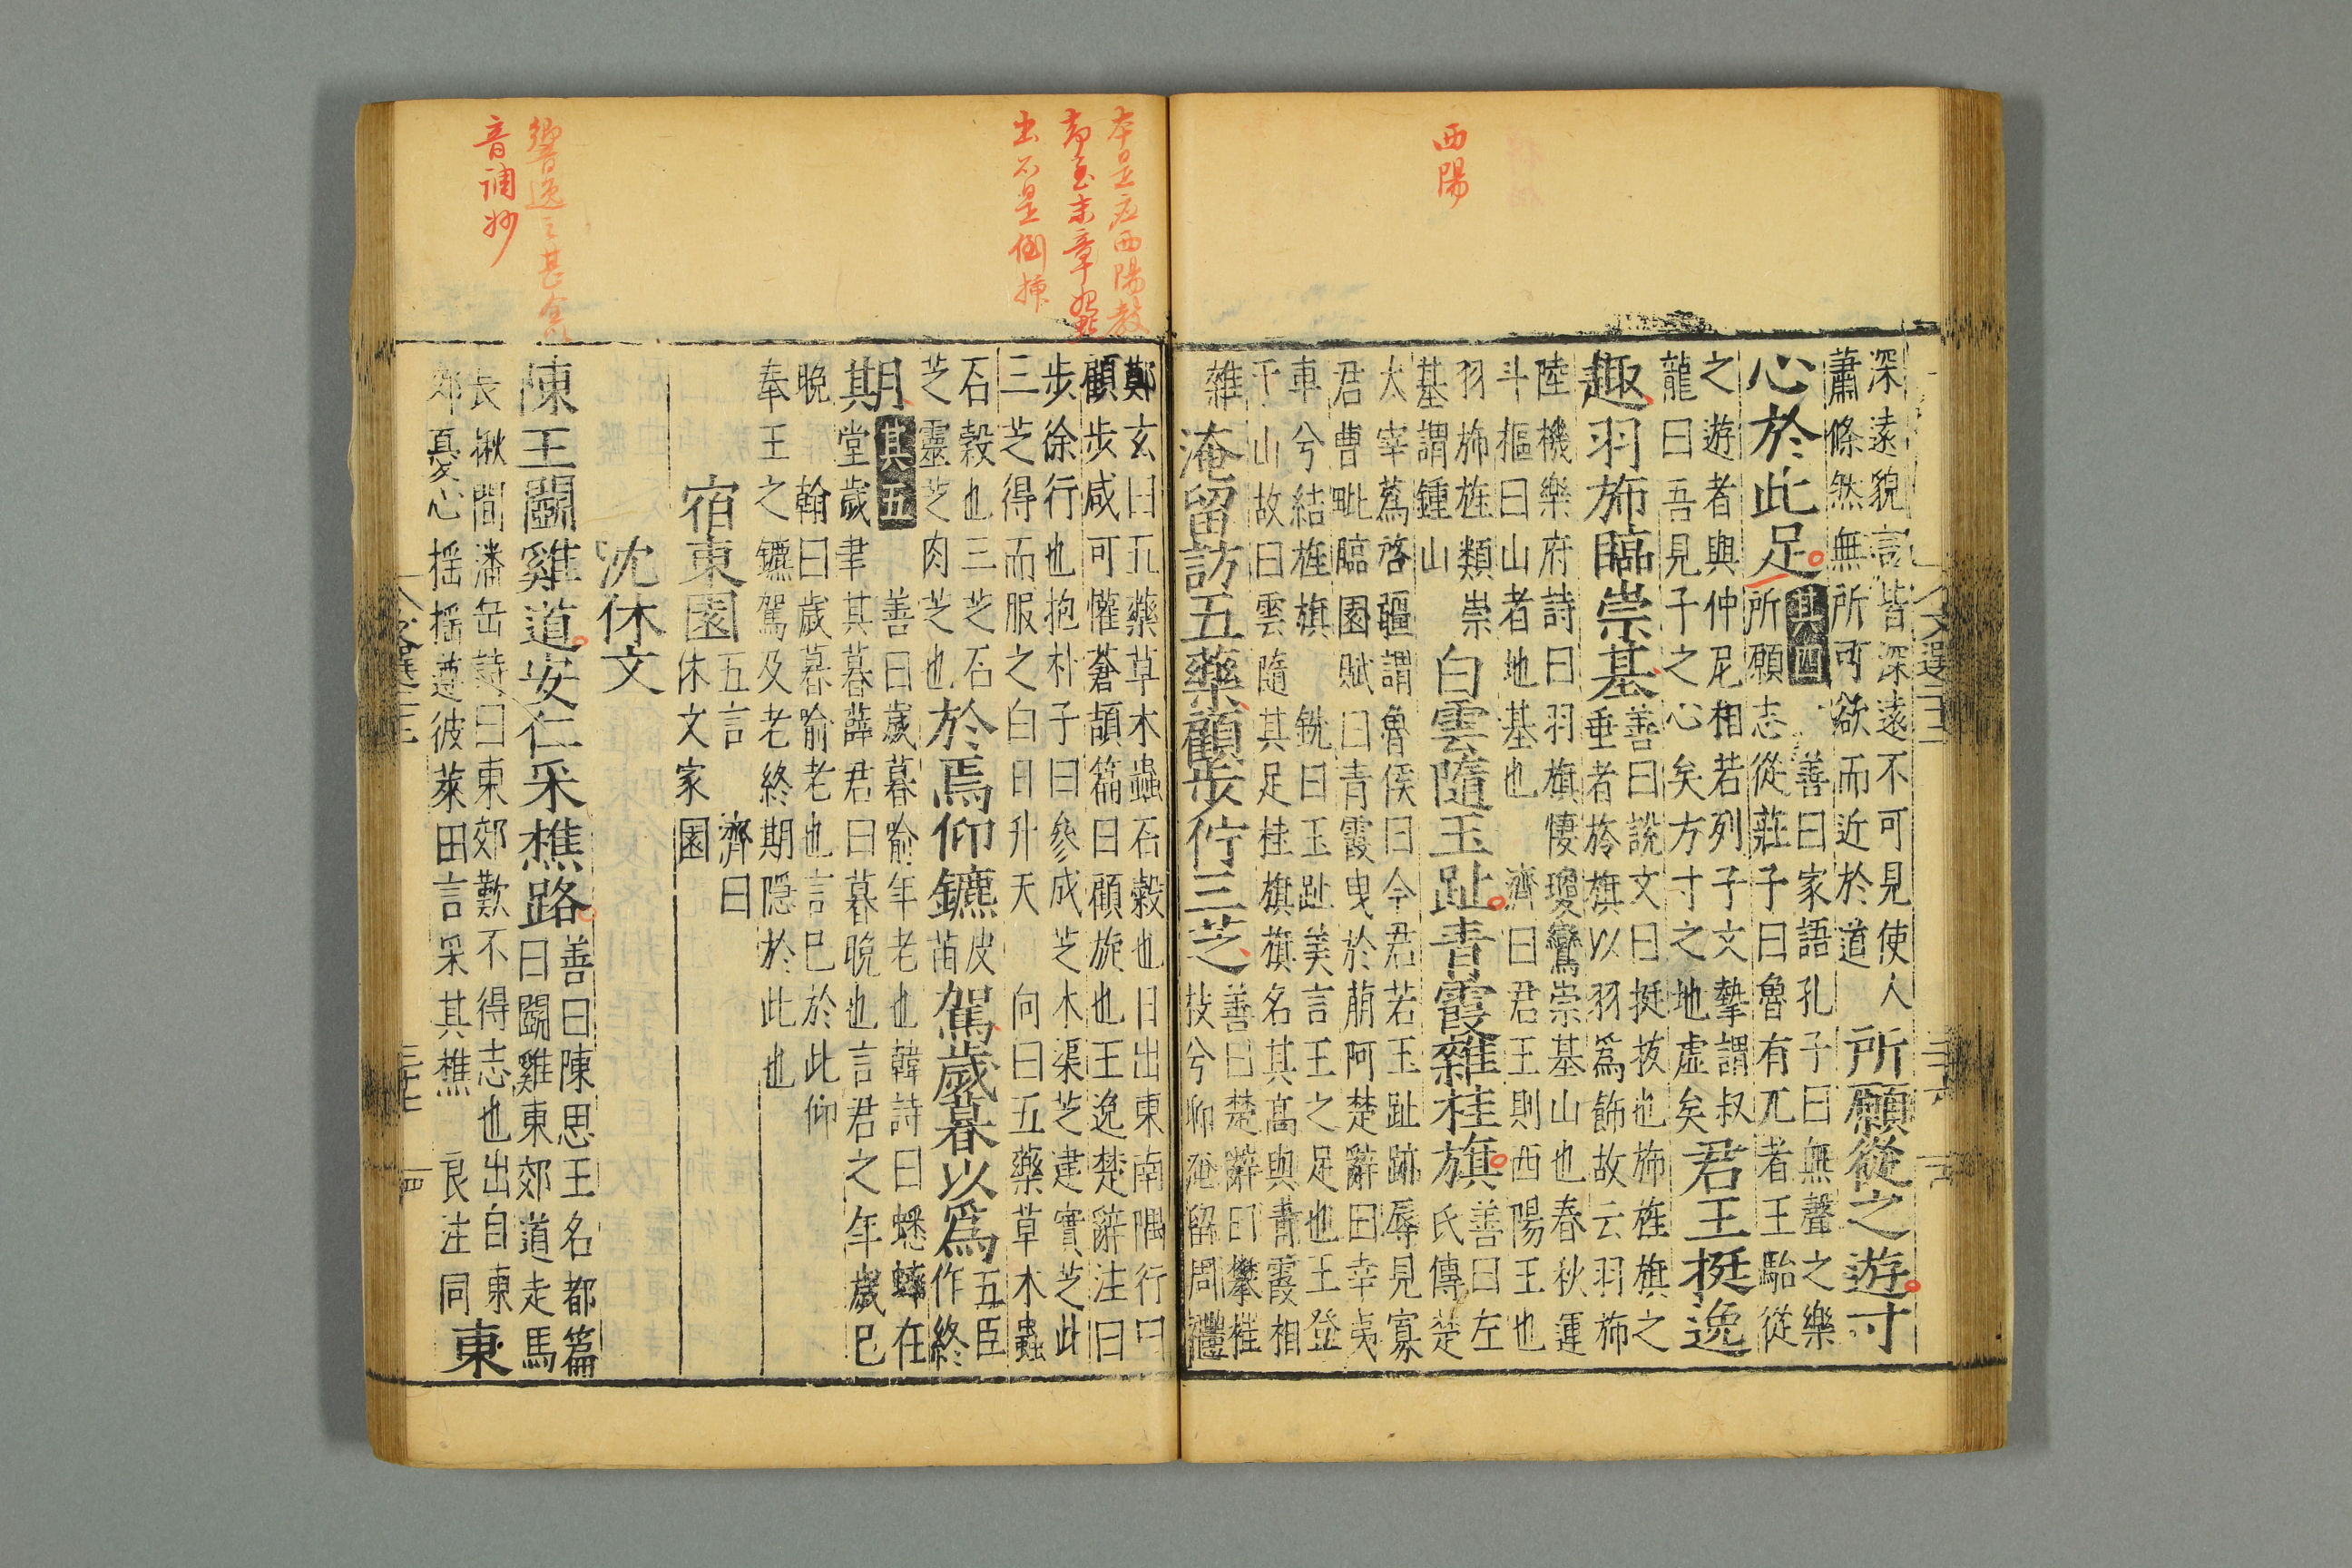 西陽
深遠貌言皆深遠不可見使人
蕭條然無所可欲而近於道
所願從之遊寸
心於此足
其四
善曰家語孔子曰無聲之樂
所願志從莊子曰魯有兀者王駘從
之遊者與仲尼相若列子文摯謂叔
龍曰吾見子之心矣方寸之地虛矣
君王挺逸
趣羽旆臨崇基
善曰說文曰挺拔也旆旌旗之
垂者於旗以羽為飾故云羽旆
陸機樂府詩曰羽旗悽瓊鸞崇基山也春秋運
斗樞曰山者地基也 濟曰君王則西陽王也
羽旆旌類崇
基謂鍾山
白雲隨玉趾青霞雜桂旗
善曰左
氏傳楚
太宰薳啓疆謂魯侯曰今君若玉趾跡辱見寡
君曹毗臨園賦曰青霞曳於前阿楚辭曰辛夷
車兮結旌旗 銑曰玉趾美言王之足也王登
于山故曰雲隨其足桂旗旗名其高與青霞相
雜
淹留訪五藥顧步佇三芝
善曰楚辭曰攀桂
枝兮聊淹留周禮
文選二十二
二十六
本是在西陽教
出不是倒揷
鄭玄曰五藥草木蟲石穀也日出東南隅行曰
顧步咸可懽蒼頡篇曰顧旋也王逸楚辭注曰
步徐行也抱朴子曰參成芝木渠芝建實芝此
三芝得而服之白日升天 向曰五藥草木蟲
石穀也三芝石
芝靈芝肉芝也
於焉仰鑣
皮
苗
駕歲暮以為
五臣
作終
期
其五
善曰歲暮喻年老也韓詩曰蟋蟀在
堂歲聿其暮薛君曰暮晚也言君之年歲已
晚 翰曰歲暮喻老也言已於此仰
奉王之鑣駕及老終期隱於此也
宿東園
五言 濟曰
休文家園
沈休文
陳王鬭雞道安仁采樵路
善曰陳思王名都篇
曰鬭雞東郊道走馬
長楸間潘岳詩曰東郊歎不得志也出自東
郊憂心搖搖遵彼萊田言采其樵 良注同
東
音調妙